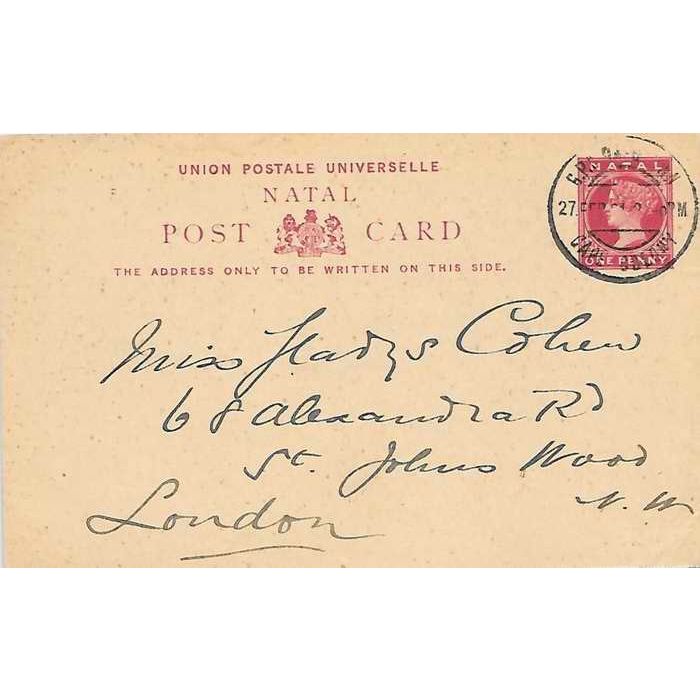 UNION POSTALE UNIVERSELLE
NATAL
POST CARD
THE ADDRESS ONLY TO BE WRITTEN ON THIS SIDE.
NATAL
ONE PENNY
27 PM
Miss Gladys Cohen
68 Alexandra Rd
St. Johns Wood
N.W
London